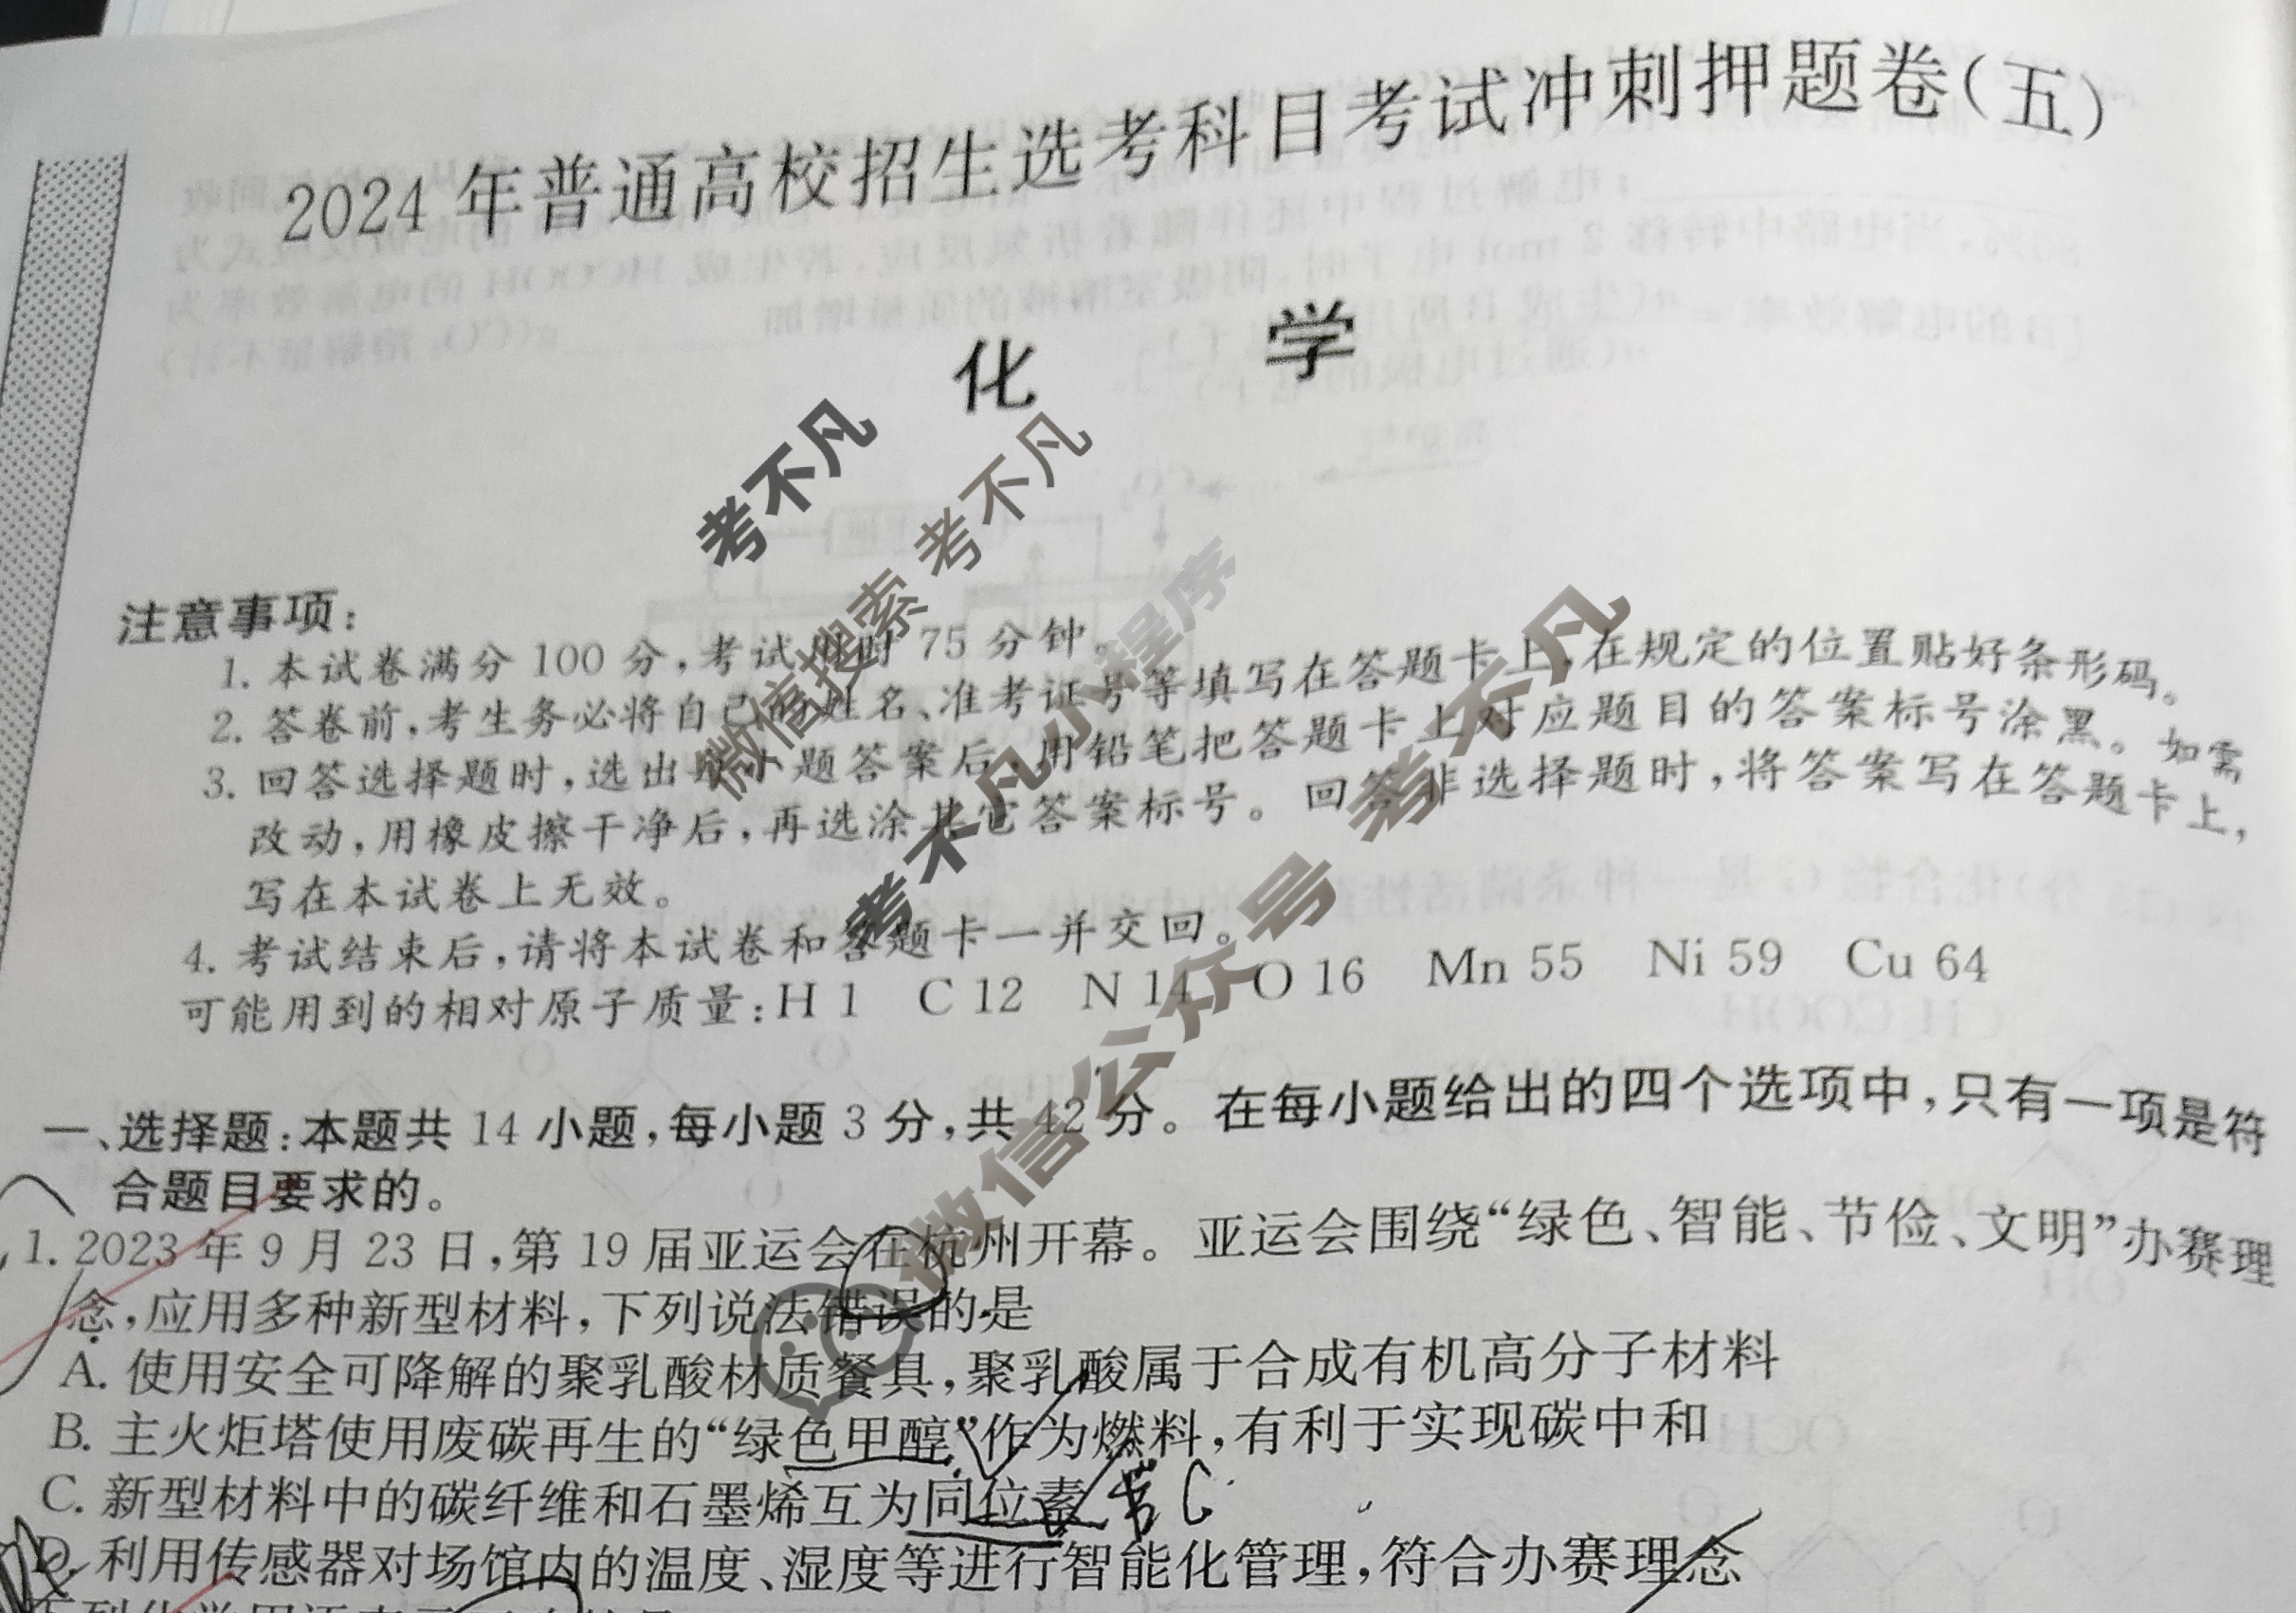 2024年普通高校招生选考科目考试冲刺押题卷(五)
化 学
注意事项:
1. 本试卷满分100分,考试用时75分钟。
2. 答卷前,考生务必将自己的姓名、准考证号等填写在答题卡上,在规定的位置贴好条形码。
3. 回答选择题时,选出每小题答案后,用铅笔把答题卡上对应题目的答案标号涂黑。如需
改动,用橡皮擦干净后,再选涂其它答案标号。回答非选择题时,将答案写在答题卡上,
写在本试卷上无效。
4. 考试结束后,请将本试卷和答题卡一并交回。
可能用到的相对原子质量:H 1 C 12 N 14 O 16 Mn 55 Ni 59 Cu 64
一、选择题:本题共14小题,每小题3分,共42分。在每小题给出的四个选项中,只有一项是符
合题目要求的。
1. 2023年9月23日,第19届亚运会在杭州开幕。亚运会围绕“绿色、智能、节俭、文明”办赛理
念,应用多种新型材料,下列说法错误的是
A. 使用安全可降解的聚乳酸材质餐具,聚乳酸属于合成有机高分子材料
B. 主火炬塔使用废碳再生的“绿色甲醇”作为燃料,有利于实现碳中和
C. 新型材料中的碳纤维和石墨烯互为同位素
D. 利用传感器对场馆内的温度、湿度等进行智能化管理,符合办赛理念
考不凡
微信搜索 考不凡
考不凡小程序
微信公众号 考不凡